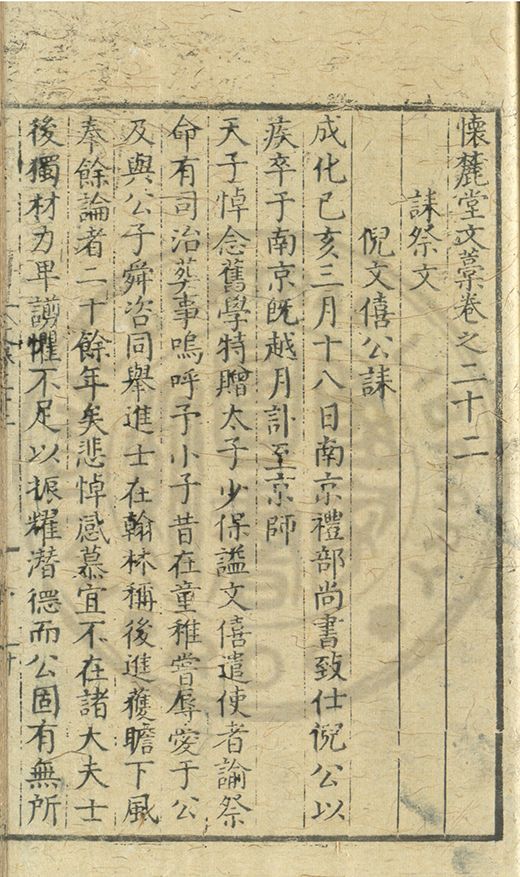 懷麓堂文藁卷之二十二
誄祭文
倪文僖公誄
成化已亥三月十八日南京禮部尚書致仕倪公以
疾卒于南京旣越月訃至京師
天子悼念舊學特贈太子少保諡文僖遣使者諭祭
命有司治葬事嗚呼予小子昔在童稚嘗辱愛于公
及與公子舜咨同舉進士在翰林稱後進獲瞻下風
奉餘論者二十餘年矣悲悼感慕宜不在諸大夫士
後獨材力卑謭懼不足以振耀潛德而公固有無所